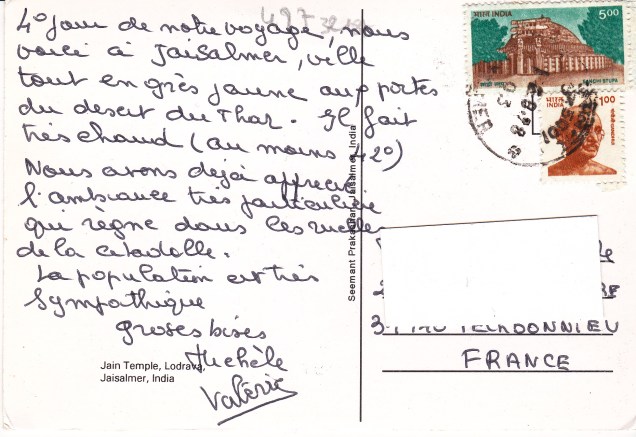 4º jour de notre voyage, nous
voici à Jaisalmer, ville
tout en grès jaune aux portes
du desert du Thar. Il fait
très chaud (au moins 42º)
Nous avons dejà apprecié
l'ambiance très particulière
qui règne dans les ruelles
de la citadelle.
La population est très
sympathique
Groses bises
Michèle
Valérie
Jain Temple, Lodrava,
Jaisalmer, India
Seemant Prakashan, Jaisalmer, India
497
भारत INDIA
5.00
SANCHI STUPA
भारत
INDIA
100
FRANCE